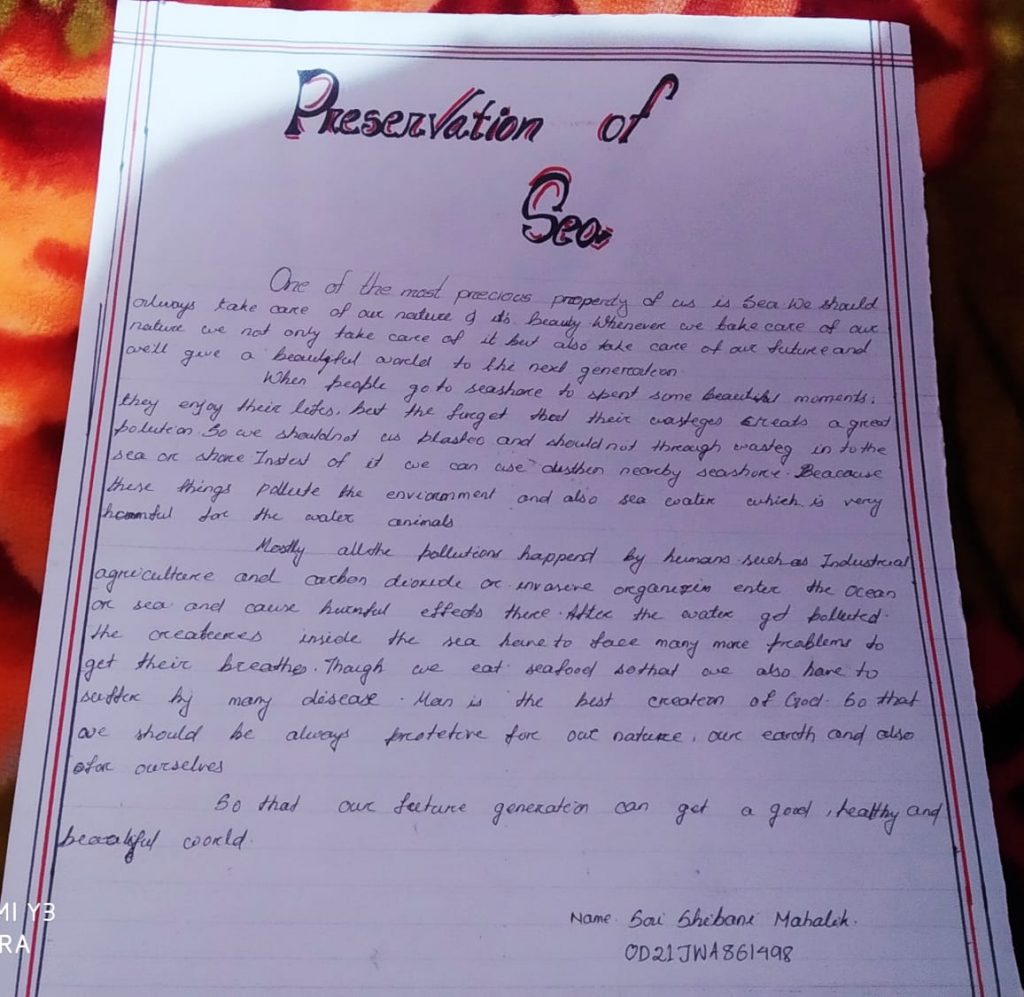 Preservation of
Sea
One of the most precious property of us is Sea We should
always take care of our nature & it's beauty Whenever we take care of our
nature we not only take care of it but also take care of our future and
we'll give a beautiful world to the next generation.
When people go to seashore to spent some beautiful moments,
they enjoy their lifes, but the forget that their wasteges creats a great
polution. So we shouldnot us plastec and should not through wasteg in to the
sea or shore Insted of it we can use dustben nearby seashore. Beacause
these things pollute the enviornment and also sea water which is very
harmful for the water animals
Mostly all the pollutions happend by humans such as Industrial
agriculture and carbon dioxide or invasive organizin enter the ocean
or sea and cause harmful effects there. After the water get polluted.
the creatures inside the sea have to face many more problems to
get their breathe. Though we eat seafood sothat we also have to
suffer by many disease. Man is the best creation of God. So that
we should be always protetive for out nature, our earth and also
for ourselves
So that our future generation can get a good, healthy and
beautiful world.
Name. Sai Shibani Mahalik.
OD21JWA861498
MI Y3
RA